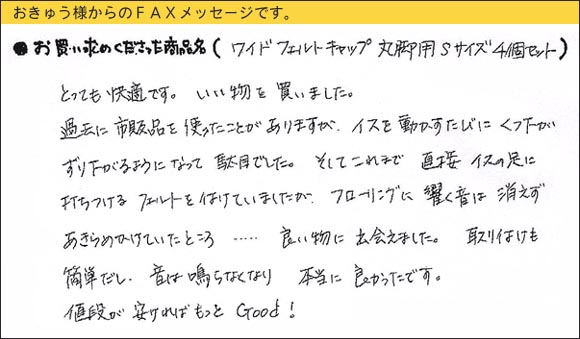 おきゅう様からのＦＡＸメッセージです。
● お買い求めくださった商品名 ( ワイドフェルトキャップ 丸脚用 Sサイズ 4個セット )
とっても快適です。 いい物を買いました。
過去に市販品を使ったことがありますが、イスを動かすたびに くつ下が
ずり下がるようになって 駄目でした。 そしてこれまで 直接 イスの足に
打ちつける フェルトを付けていましたが、フローリングに 響く音は 消えず
あきらめかけていたところ ‥‥‥ 良い物に出会えました。 取り付けも
簡単だし、音は鳴らなくなり 本当に良かったです。
値段が安ければもっと Good!